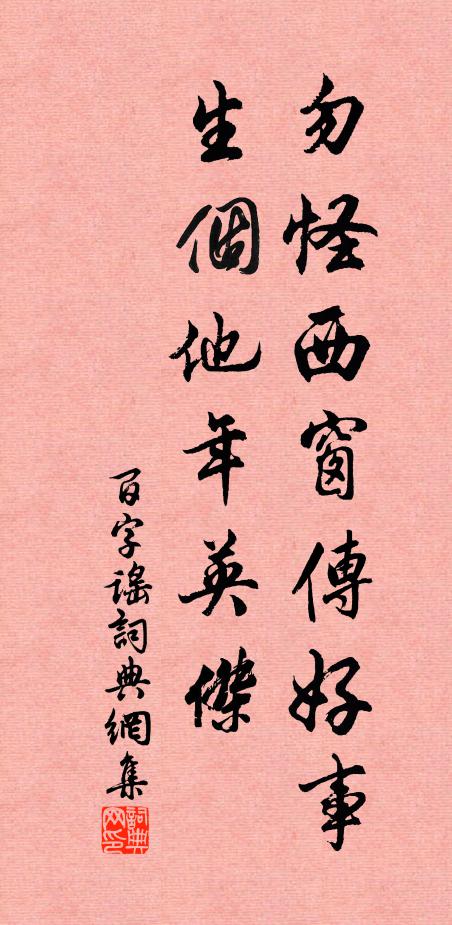 勿怪西窗傳好事
生個他年英傑
百字謠詞典網集
詞典网印